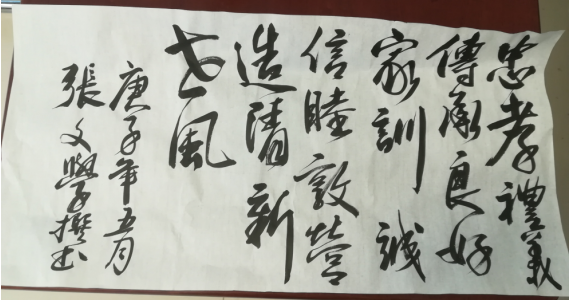 忠孝禮義
傳承良好
家訓誠
信睦敦營
造清新
世風
庚子年五月
張文學撰书